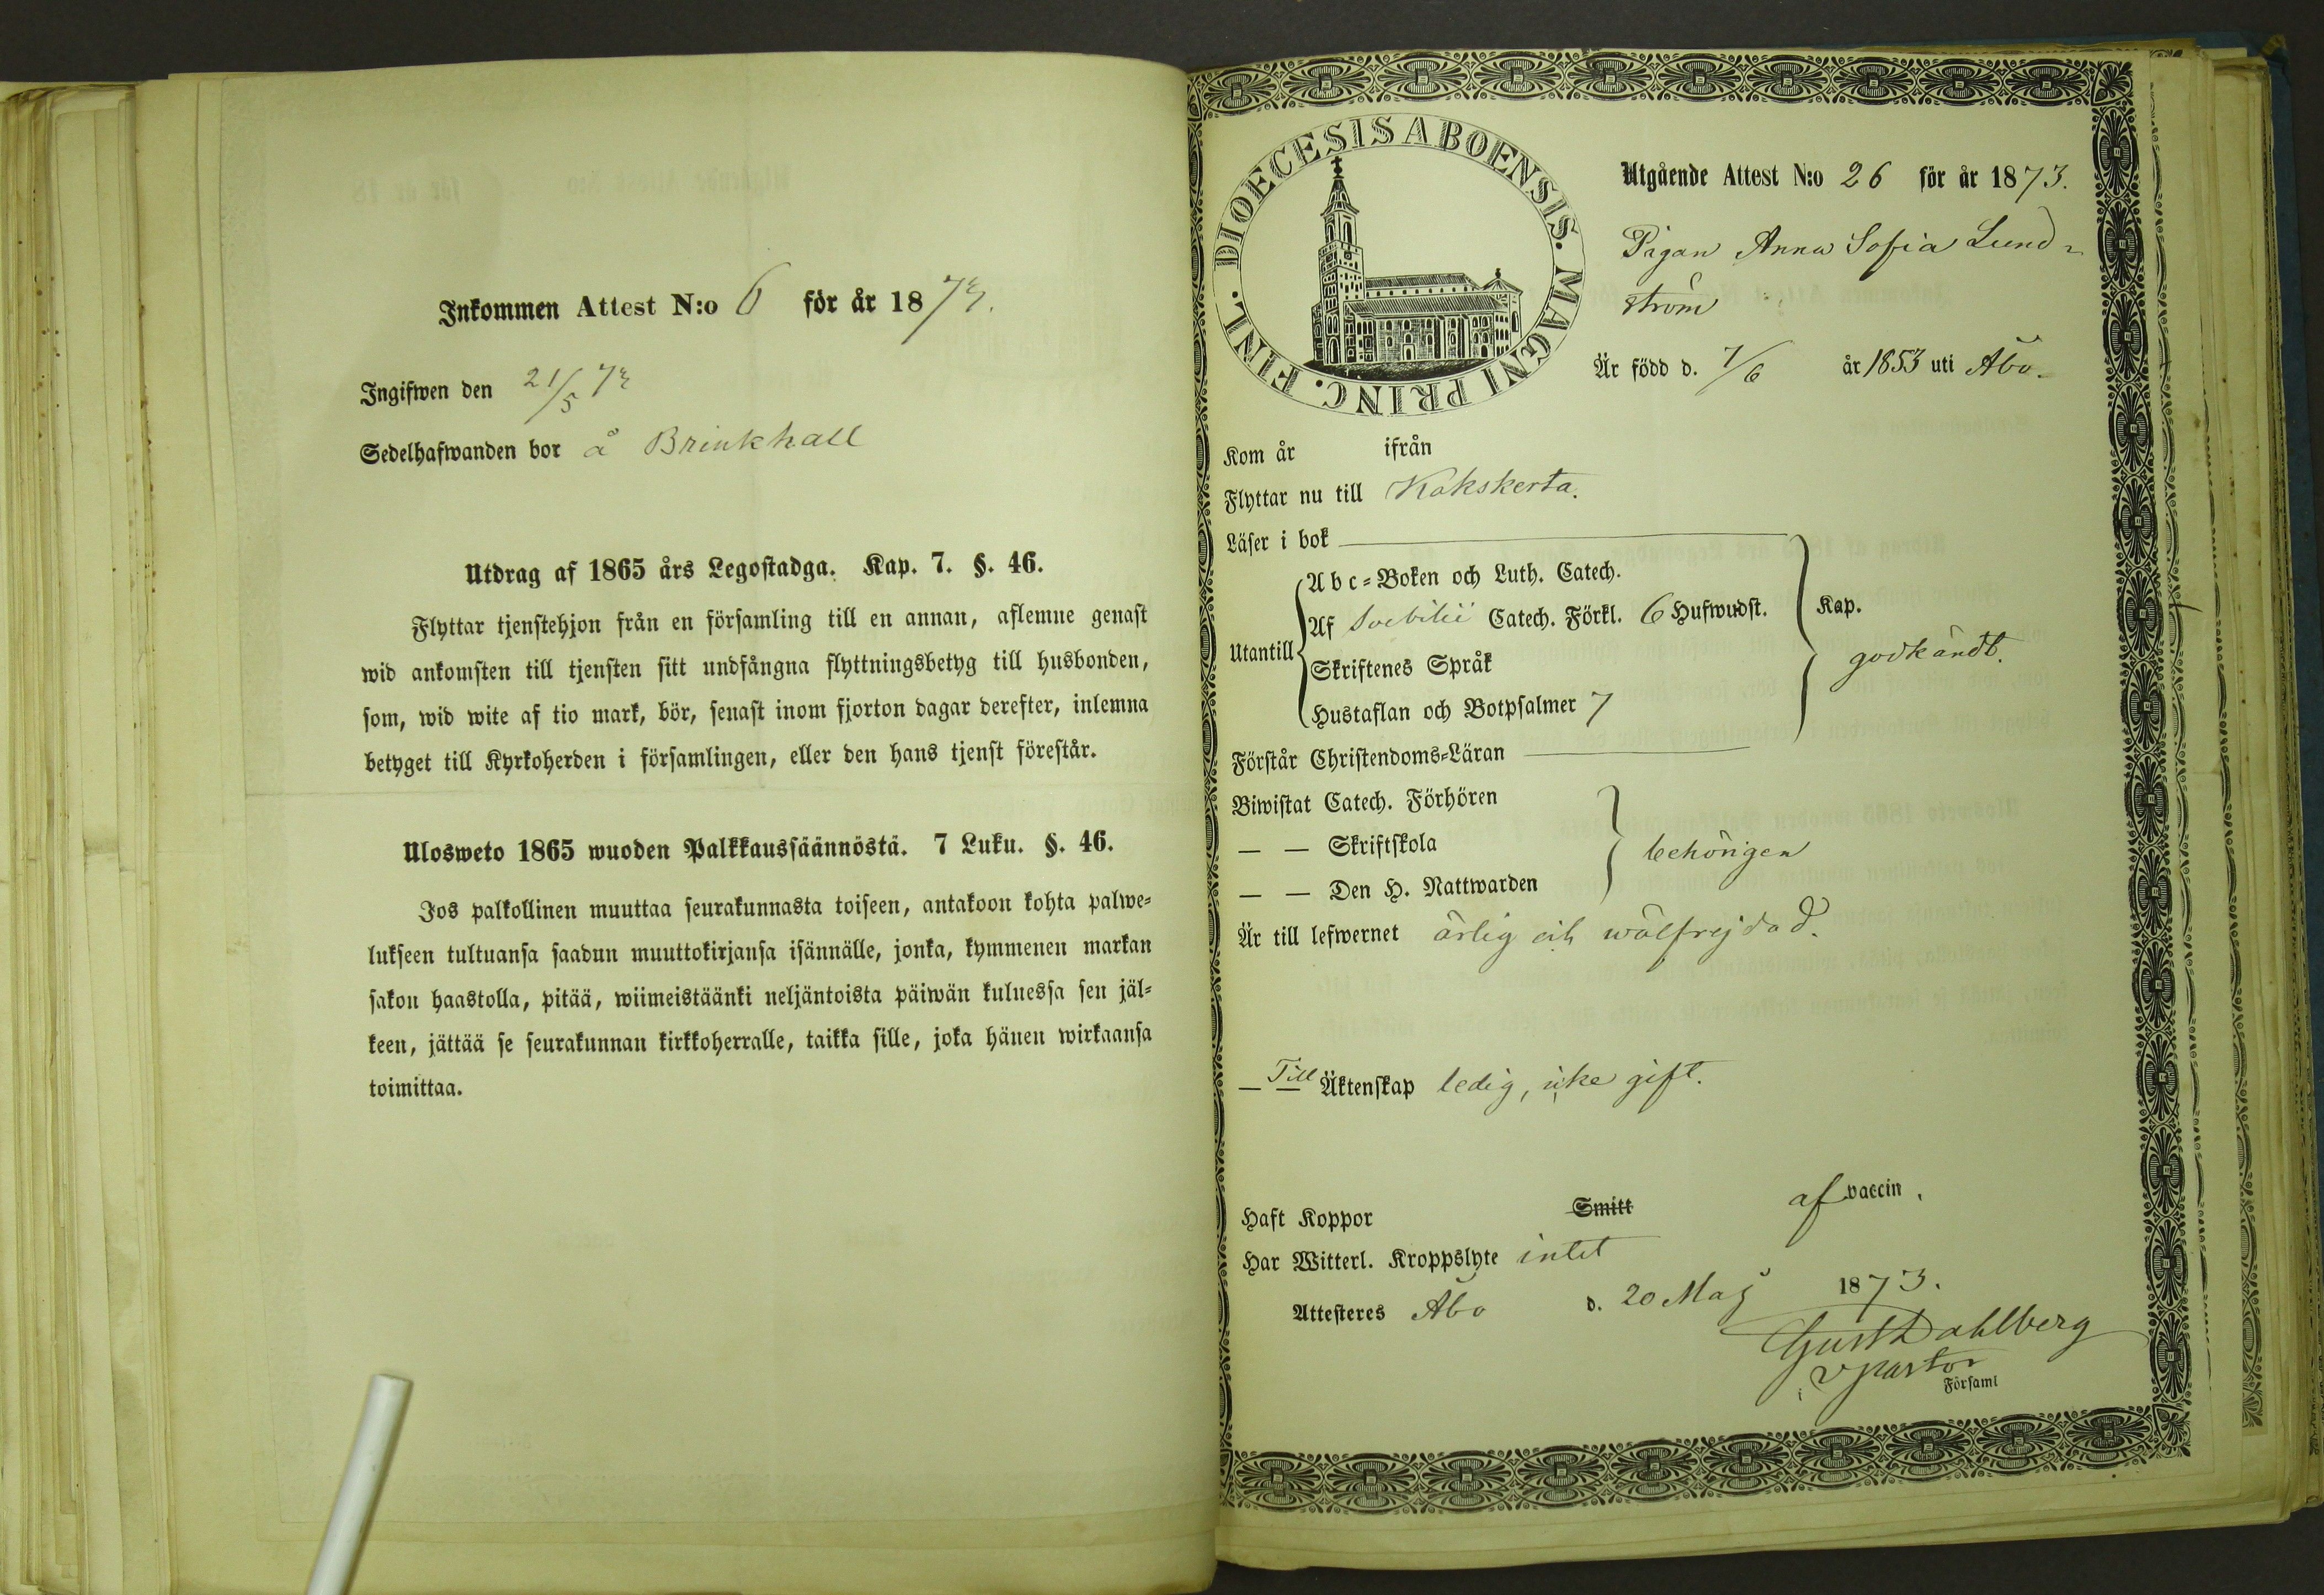 Inkommen Attest N:o 6 för år 1873.
Ingifwen den 21/5 73
Sedelhafwanden bor å Brinkhall
Utdrag af 1865 års Legostadga. Kap. 7. §. 46.
Flyttar tjenstehjon från en församling till en annan, aflemne genast
wid ankomsten till tjensten sitt undfångna flyttningsbetyg till husbonden,
som, wid wite af tio mark, bör, senast inom fjorton dagar derefter, inlemna
betyget till Kyrkoherden i församlingen, eller den hans tjenst förestår.
Ulosweto 1865 wuoden Palkkaussäännöstä. 7 Luku. §. 46.
Jos palkollinen muuttaa seurakunnasta toiseen, antakoon kohta palwe-
lukseen tultuansa saadun muuttokirjansa isännälle, jonka, kymmenen markan
sakon haastolla, pitää, wiimeistäänki neljäntoista päiwän kuluessa sen jäl-
keen, jättää se seurakunnan kirkkoherralle, taikka sille, joka hänen wirkaansa
toimittaa.
DIOECESIS ABOENSIS. MAGNI PRINC. FINL.
Utgående Attest N:o 26 för år 1873.
Pigan Anna Sofia Lund-
ström
Är född d. 7/6 år 1853 uti Åbo.
Kom år ifrån
Flyttar nu till Kakskerta.
Läser i bok
Utantill
Abc-Boken och Luth. Catech.
Af Svebilii Catech. Förkl. 6 Hufwudst.
Skriftenes Språk
Hustaflan och Botpsalmer 7
Kap.
godkändt.
Förstår Christendoms-Läran
Biwistat Catech. Förhören
— — Skriftskola
— — Den H. Nattwarden
behörigen
Är till lefwernet ärlig och wälfrejdad.
— Till — Äktenskap ledig, icke gift.
Haft Koppor Smitt af vaccin.
Har Witterl. Kroppslyte intet
Attesteres Åbo d. 20 Maj 1873.
Gust Dahlberg
v pastor
i Församl